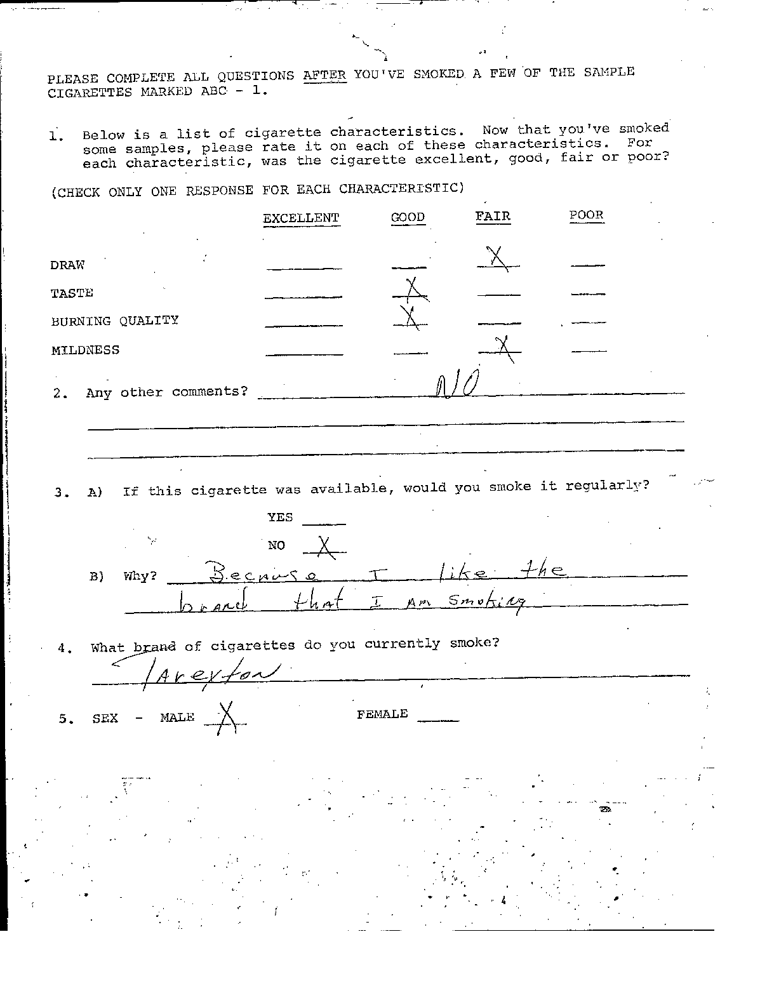 PLEASE COMPLETE ALL QUESTIONS AFTER YOU'VE SMOKED A FEW OF THE SAMPLE
CIGARETTES MARKED ABC - 1.
1. Below is a list of cigarette characteristics. Now that you've smoked
some samples, please rate it on each of these characteristics. For
each characteristic, was the cigarette excellent, good, fair or poor?
(CHECK ONLY ONE RESPONSE FOR EACH CHARACTERISTIC)
EXCELLENT GOOD FAIR POOR
DRAW X
TASTE X
BURNING QUALITY X
MILDNESS X
2. Any other comments? NO
3. A) If this cigarette was available, would you smoke it regularly?
YES
NO X
B) Why? Because I like the
brand that I Am Smoking
4. What brand of cigarettes do you currently smoke?
Tareyton
5. SEX - MALE X FEMALE